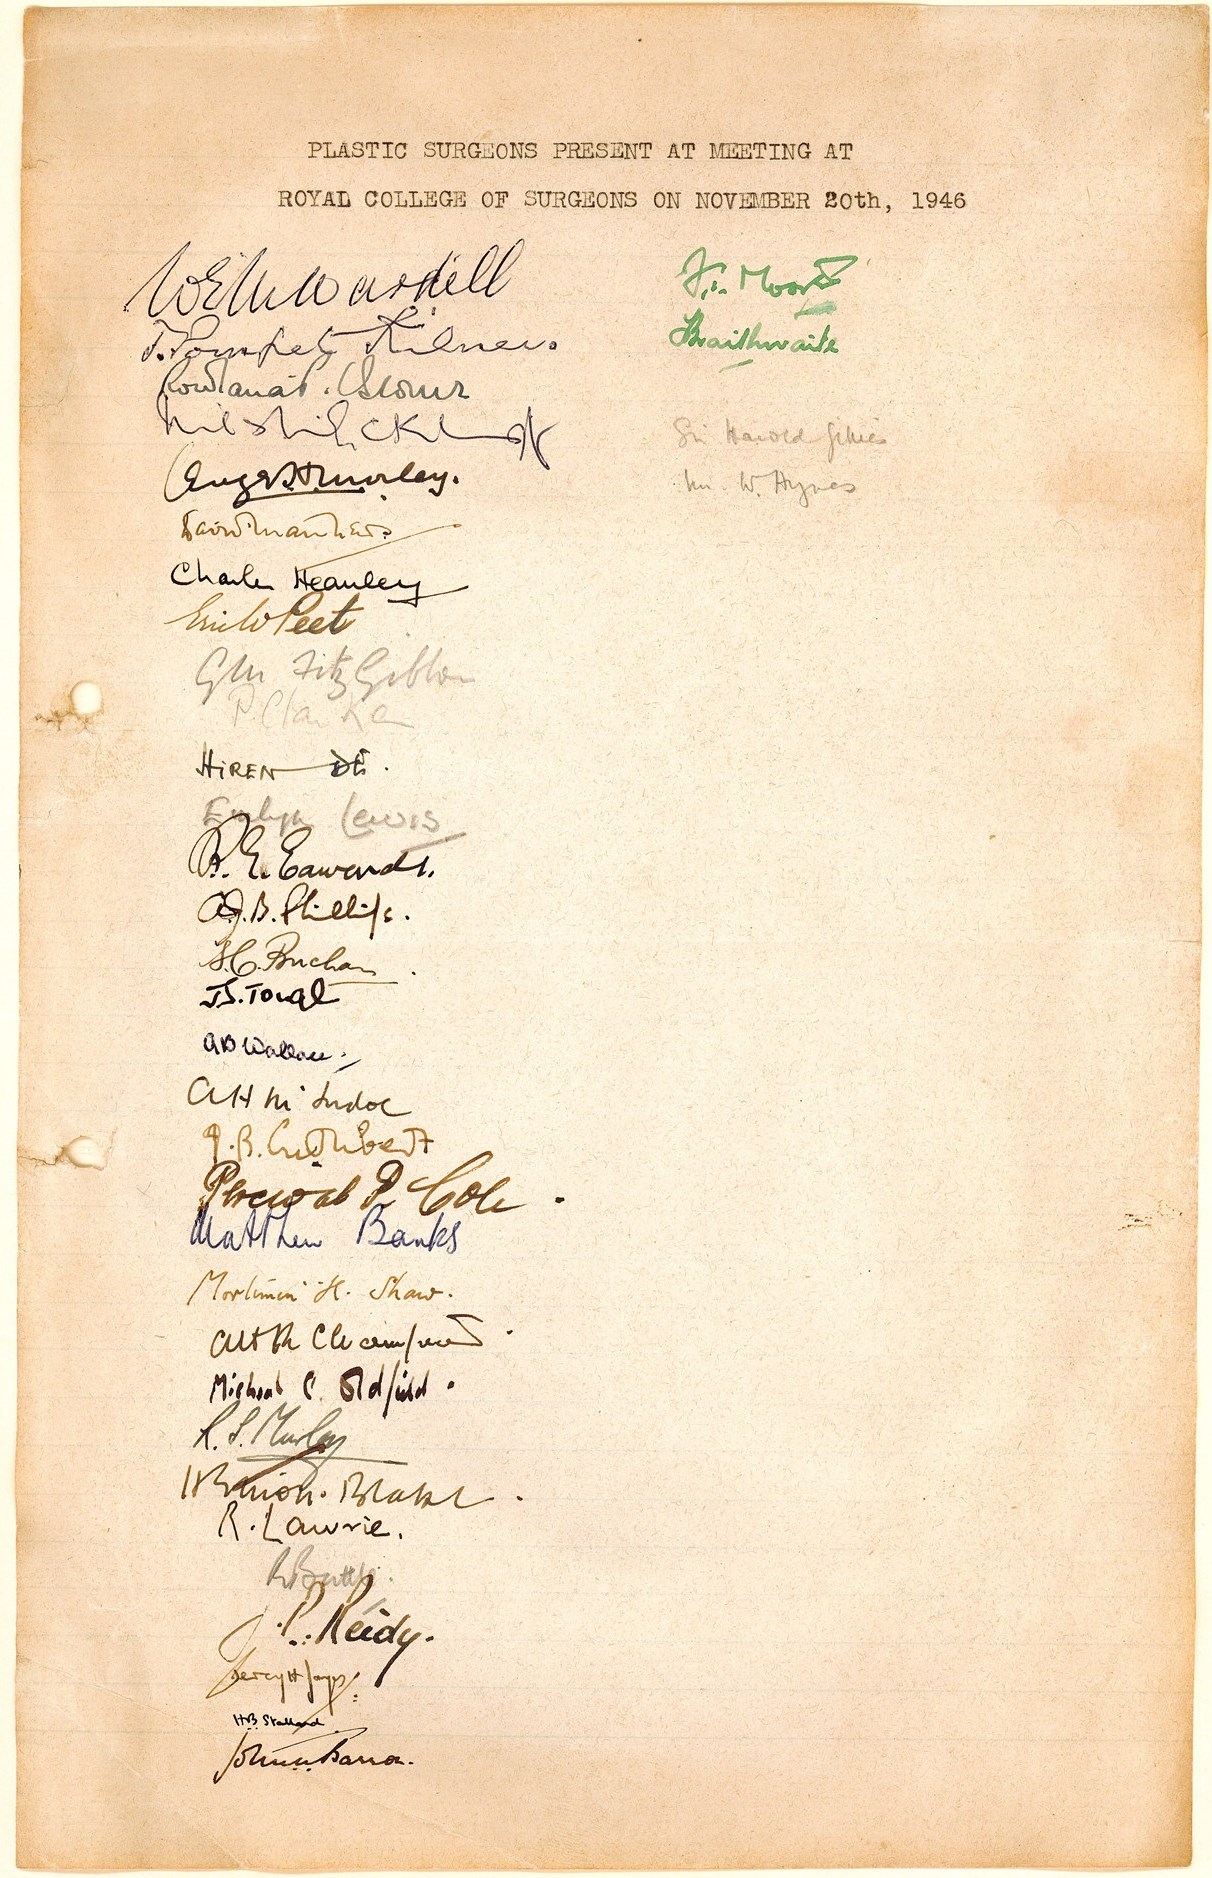 PLASTIC SURGEONS PRESENT AT MEETING AT
ROYAL COLLEGE OF SURGEONS ON NOVEMBER 20th, 1946
Wardell
T. Pomfret Kilner.
Rowland P. Osborne
David Matthews
Charles Heanley
Eric W Peet
GM FitzGibbon
P. Clarke
HIREN DE.
Emlyn Lewis
B. E. Edwards.
A.J.B. Phillips.
Buchan
J.S. Tough
AB Wallace.
AH McIndoe
J.B. Cuthbert
Percival P Cole.
Matthew Banks
Mortimer H. Shaw.
Champion
Michael C. Oldfield.
R. S. Murley
Blake
R. Lawrie.
R Battle.
J. P. Reidy.
Percy H Jayes.
HB Stallard
John N Barron.
F.T. Moore
Braithwaite
Sir Harold Gillies
Mr. W. Hynes